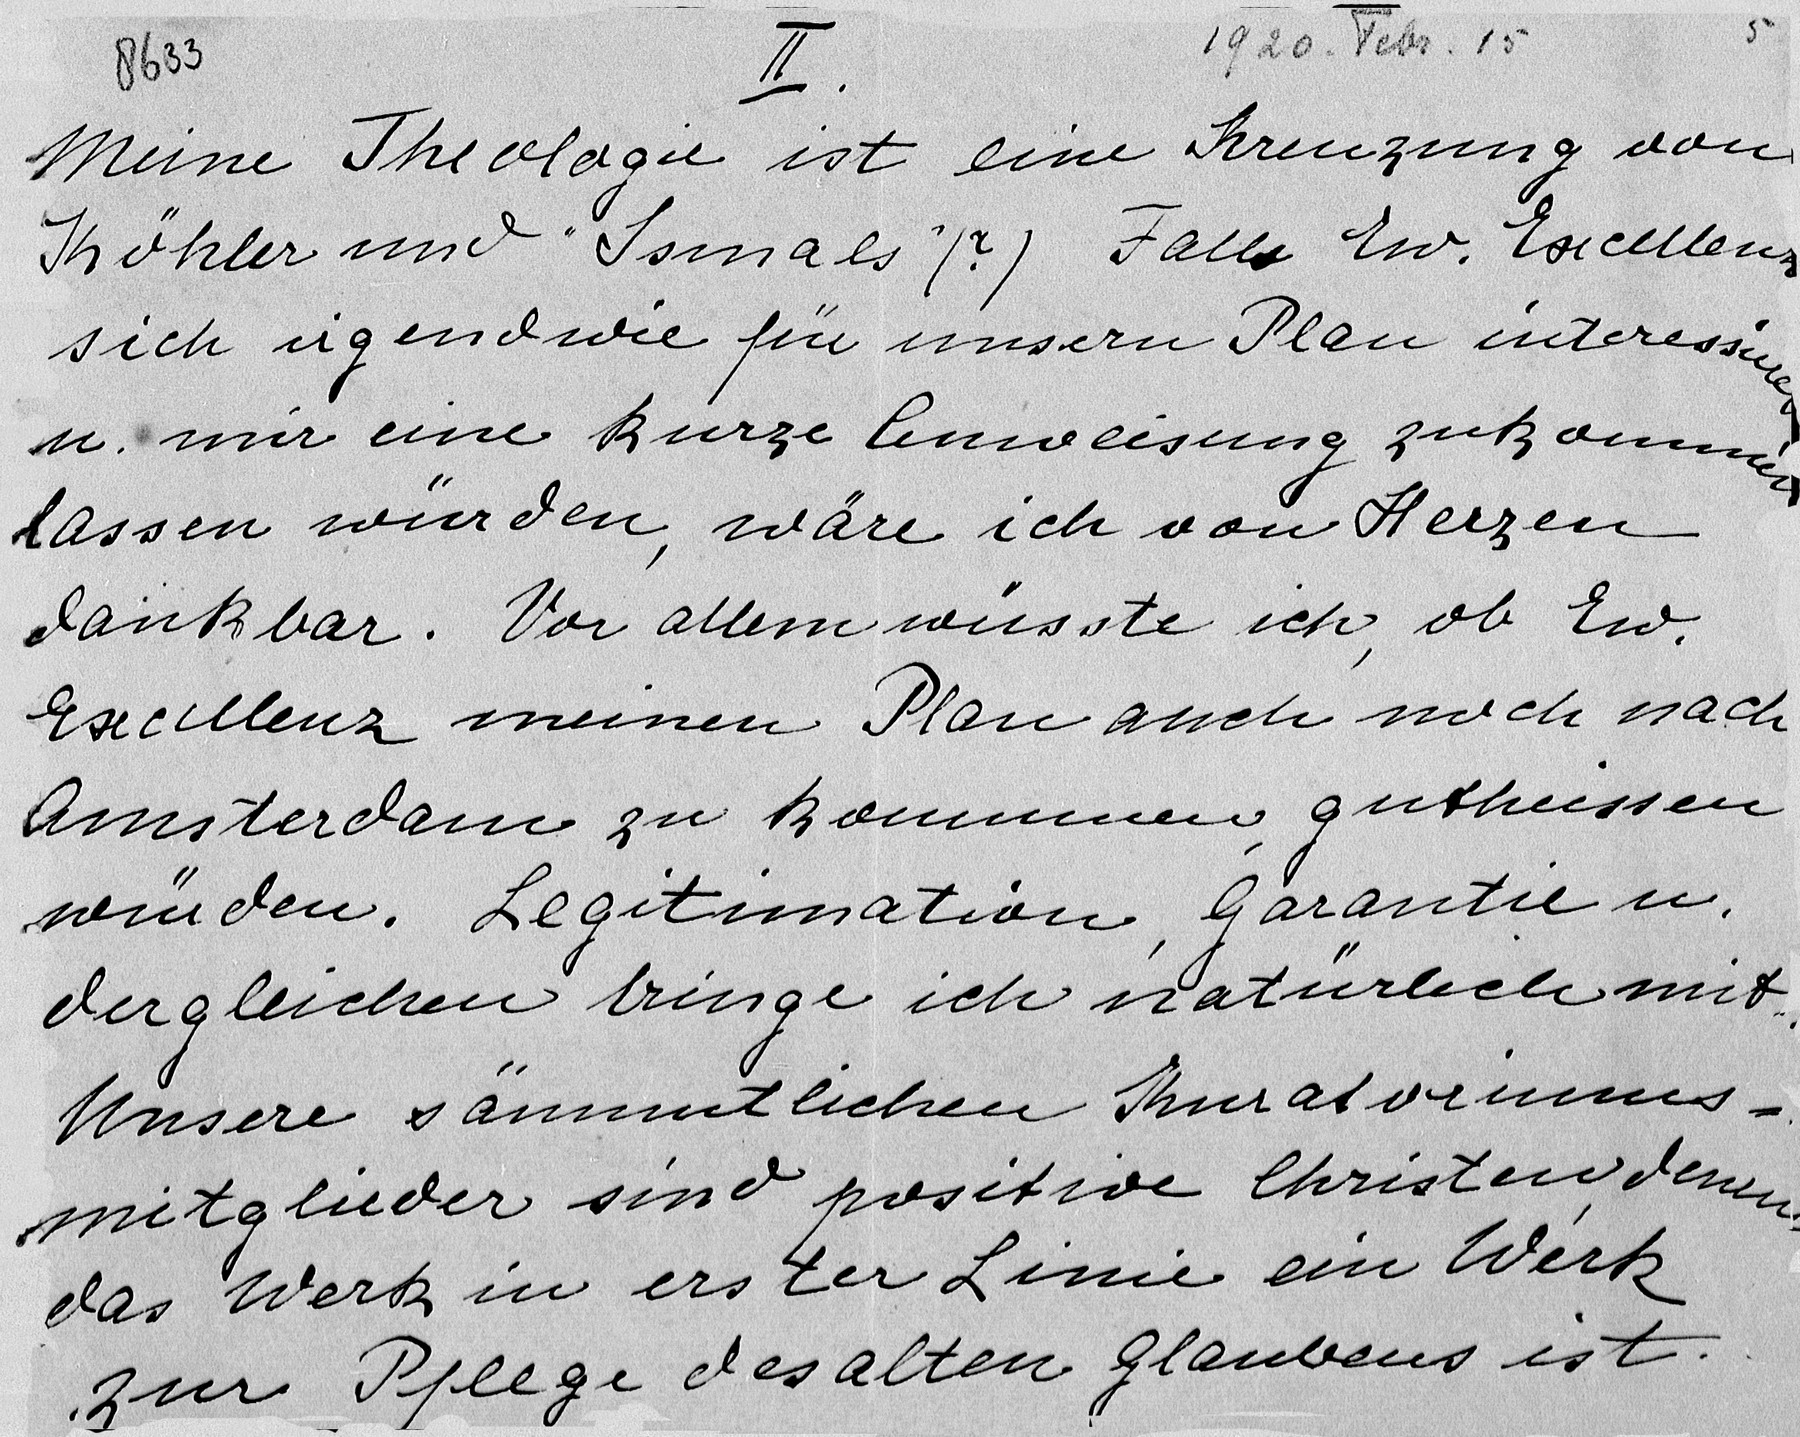 8633
II.
1920. Febr. 15
5
Meine Theologie ist eine Kreuzung von
Köhler und "Ismaels" (?) Falls Ew. Excellenz
sich irgendwie für unsern Plan interessiren
u. mir eine kurze Anweisung zukommen
lassen würden, wäre ich von Herzen
dankbar. Vor allem wüsste ich, ob Ew.
Excellenz meinen Plan auch noch nach
Amsterdam zu kommen, gutheissen
würden. Legitimation, Garantie u.
dergleichen bringe ich natürlich mit.
Unsere sämmtlichen Kuratoriums-
mitglieder sind positive Christen, denen
das Werk in erster Linie ein Werk
zur Pflege des alten Glaubens ist.